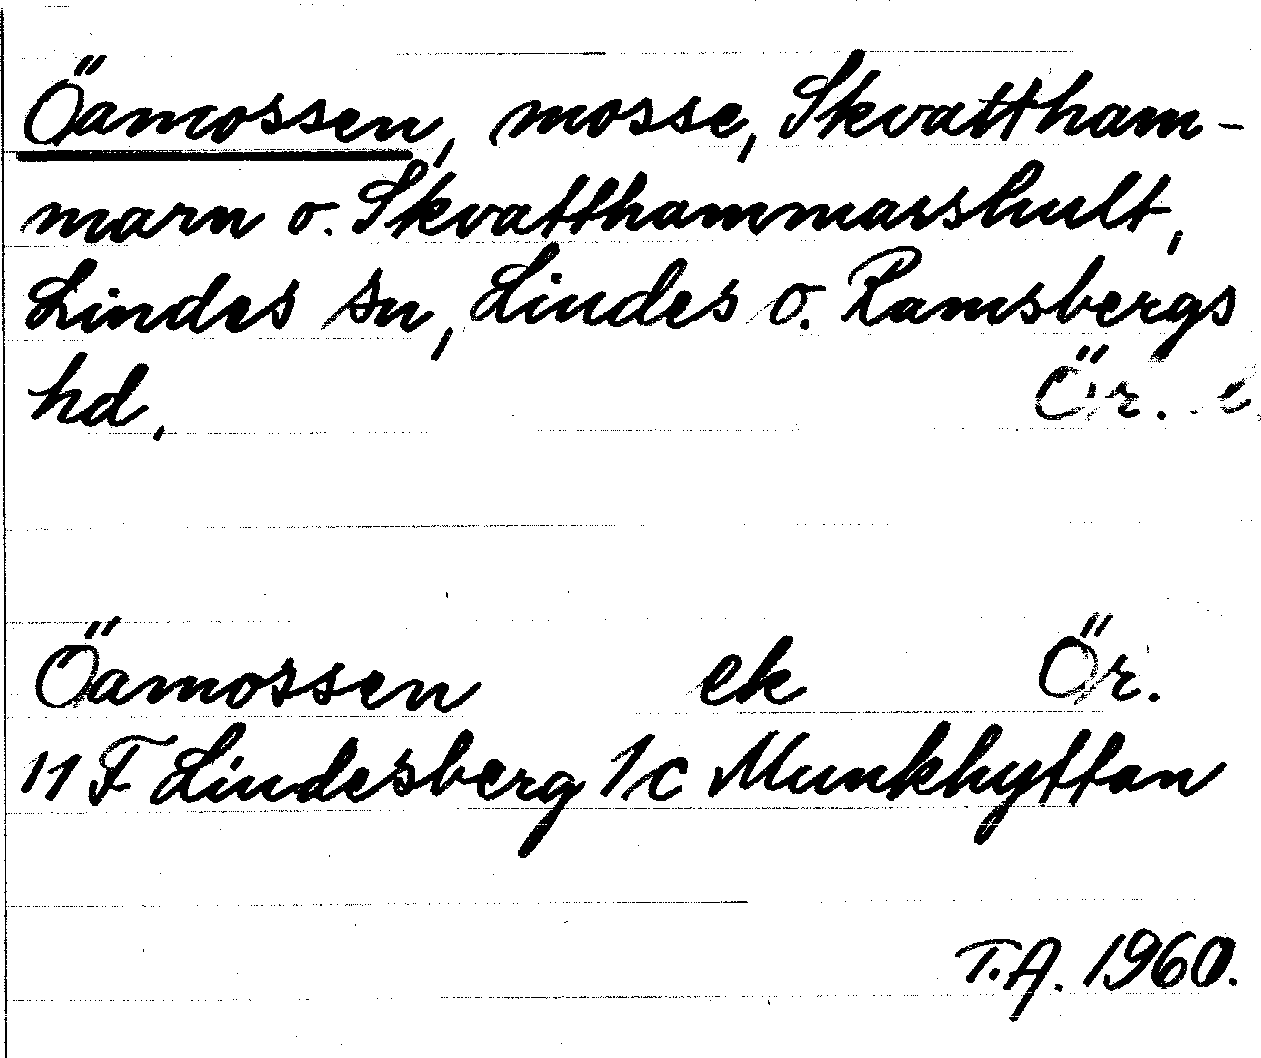 Öamossen, mosse, Skvattham-
marn o. Skvatthammarshult,
Lindes sn, Lindes o. Ramsbergs
hd.
Ör. l.
Öamossen ek Ör.
11 F Lindesberg 1c Munkhyttan
T.A. 1960.